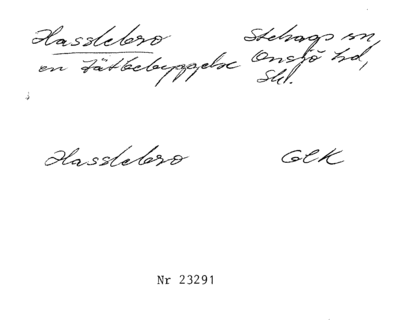 Hasslebro Stehags sn,
en tätbebyggelse Onsjö hd,
Sk.
Hasslebro GEK
Nr 23291